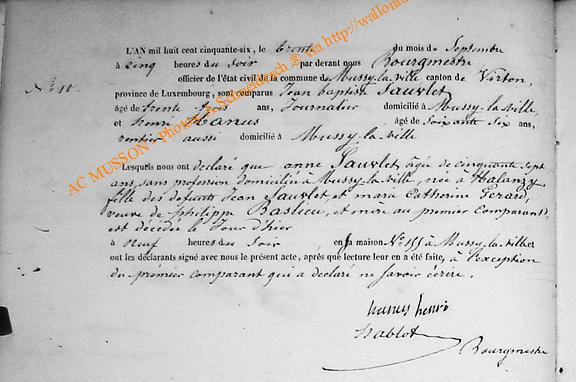 L'AN mil huit cent cinquante-six, le trente du mois de Septembre
à cinq heures du soir par devant nous Bourgmestre
officier de l'état civil de la commune de Mussy-la-ville canton de Virton,
N° 10.
province de Luxembourg, sont comparus Jean baptiste Sauvlet
âgé de trente trois ans, Journalier domicilié à Mussy-la-ville,
et henri hanus âgé de Soixante Six ans,
rentier aussi domicilié à Mussy-la-ville
Lesquels nous ont déclaré que anne Sauvlet, âgée de cinquante sept
ans, sans profession domiciliée à Mussy-la-ville, née à Halanzy
fille des defunts Jean Sauvlet et marie Catherine Gerard,
veuve de philippe Baslieu, et mere au premier Comparant,
est décédée le Jour d'hier
à neuf heures du Soir, en sa maison N° 155 à Mussy-la-ville et
ont les déclarants signé avec nous le présent acte, après que lecture leur en a été faite, à l'exception
du premier comparant qui a declaré ne savoir écrire.
hanus henri
Hablot
Bourgmestre
AC MUSSON - Photos A. Schneidesch ® via http://wallonia